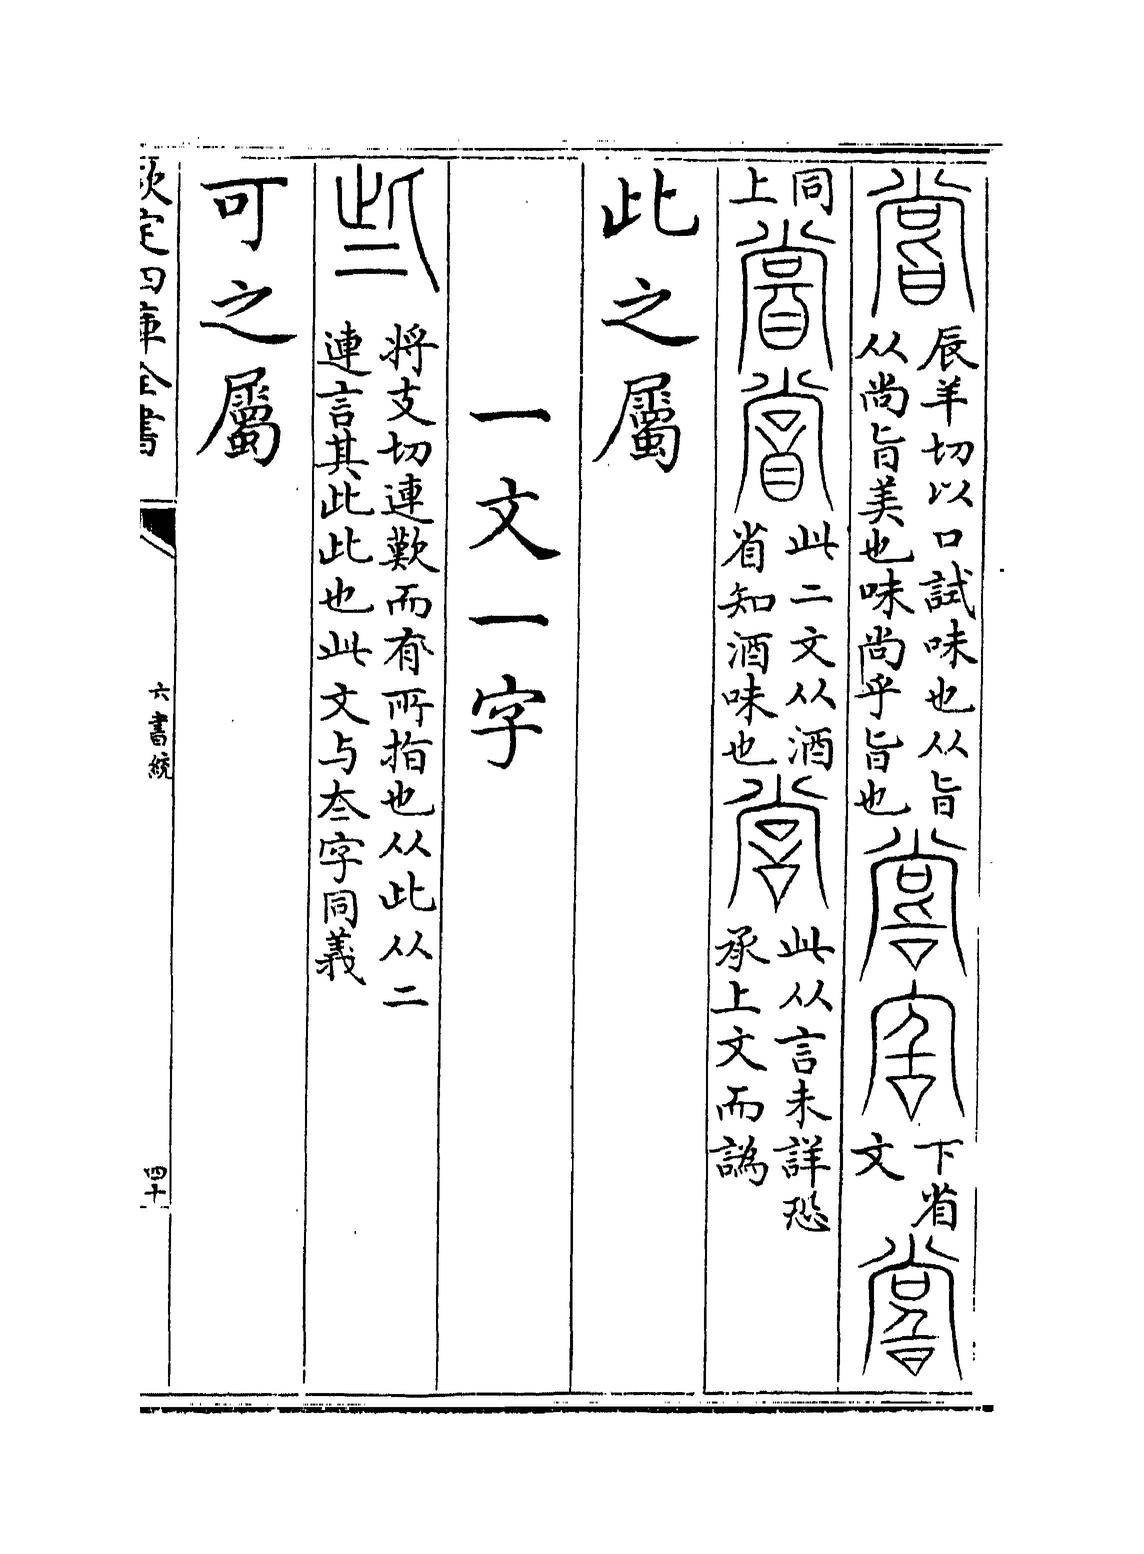 嘗辰羊切以口試味也从旨
从尚旨美也味尚乎旨也
下省
文
同
上
此二文从酒
省知酒味也
此从言未詳恐
承上文而譌
此之屬
一文一字
將支切連歎而有所指也从此从二
連言其此此也此文与叁字同義
可之屬
欽定四庫全書
六書統
四十